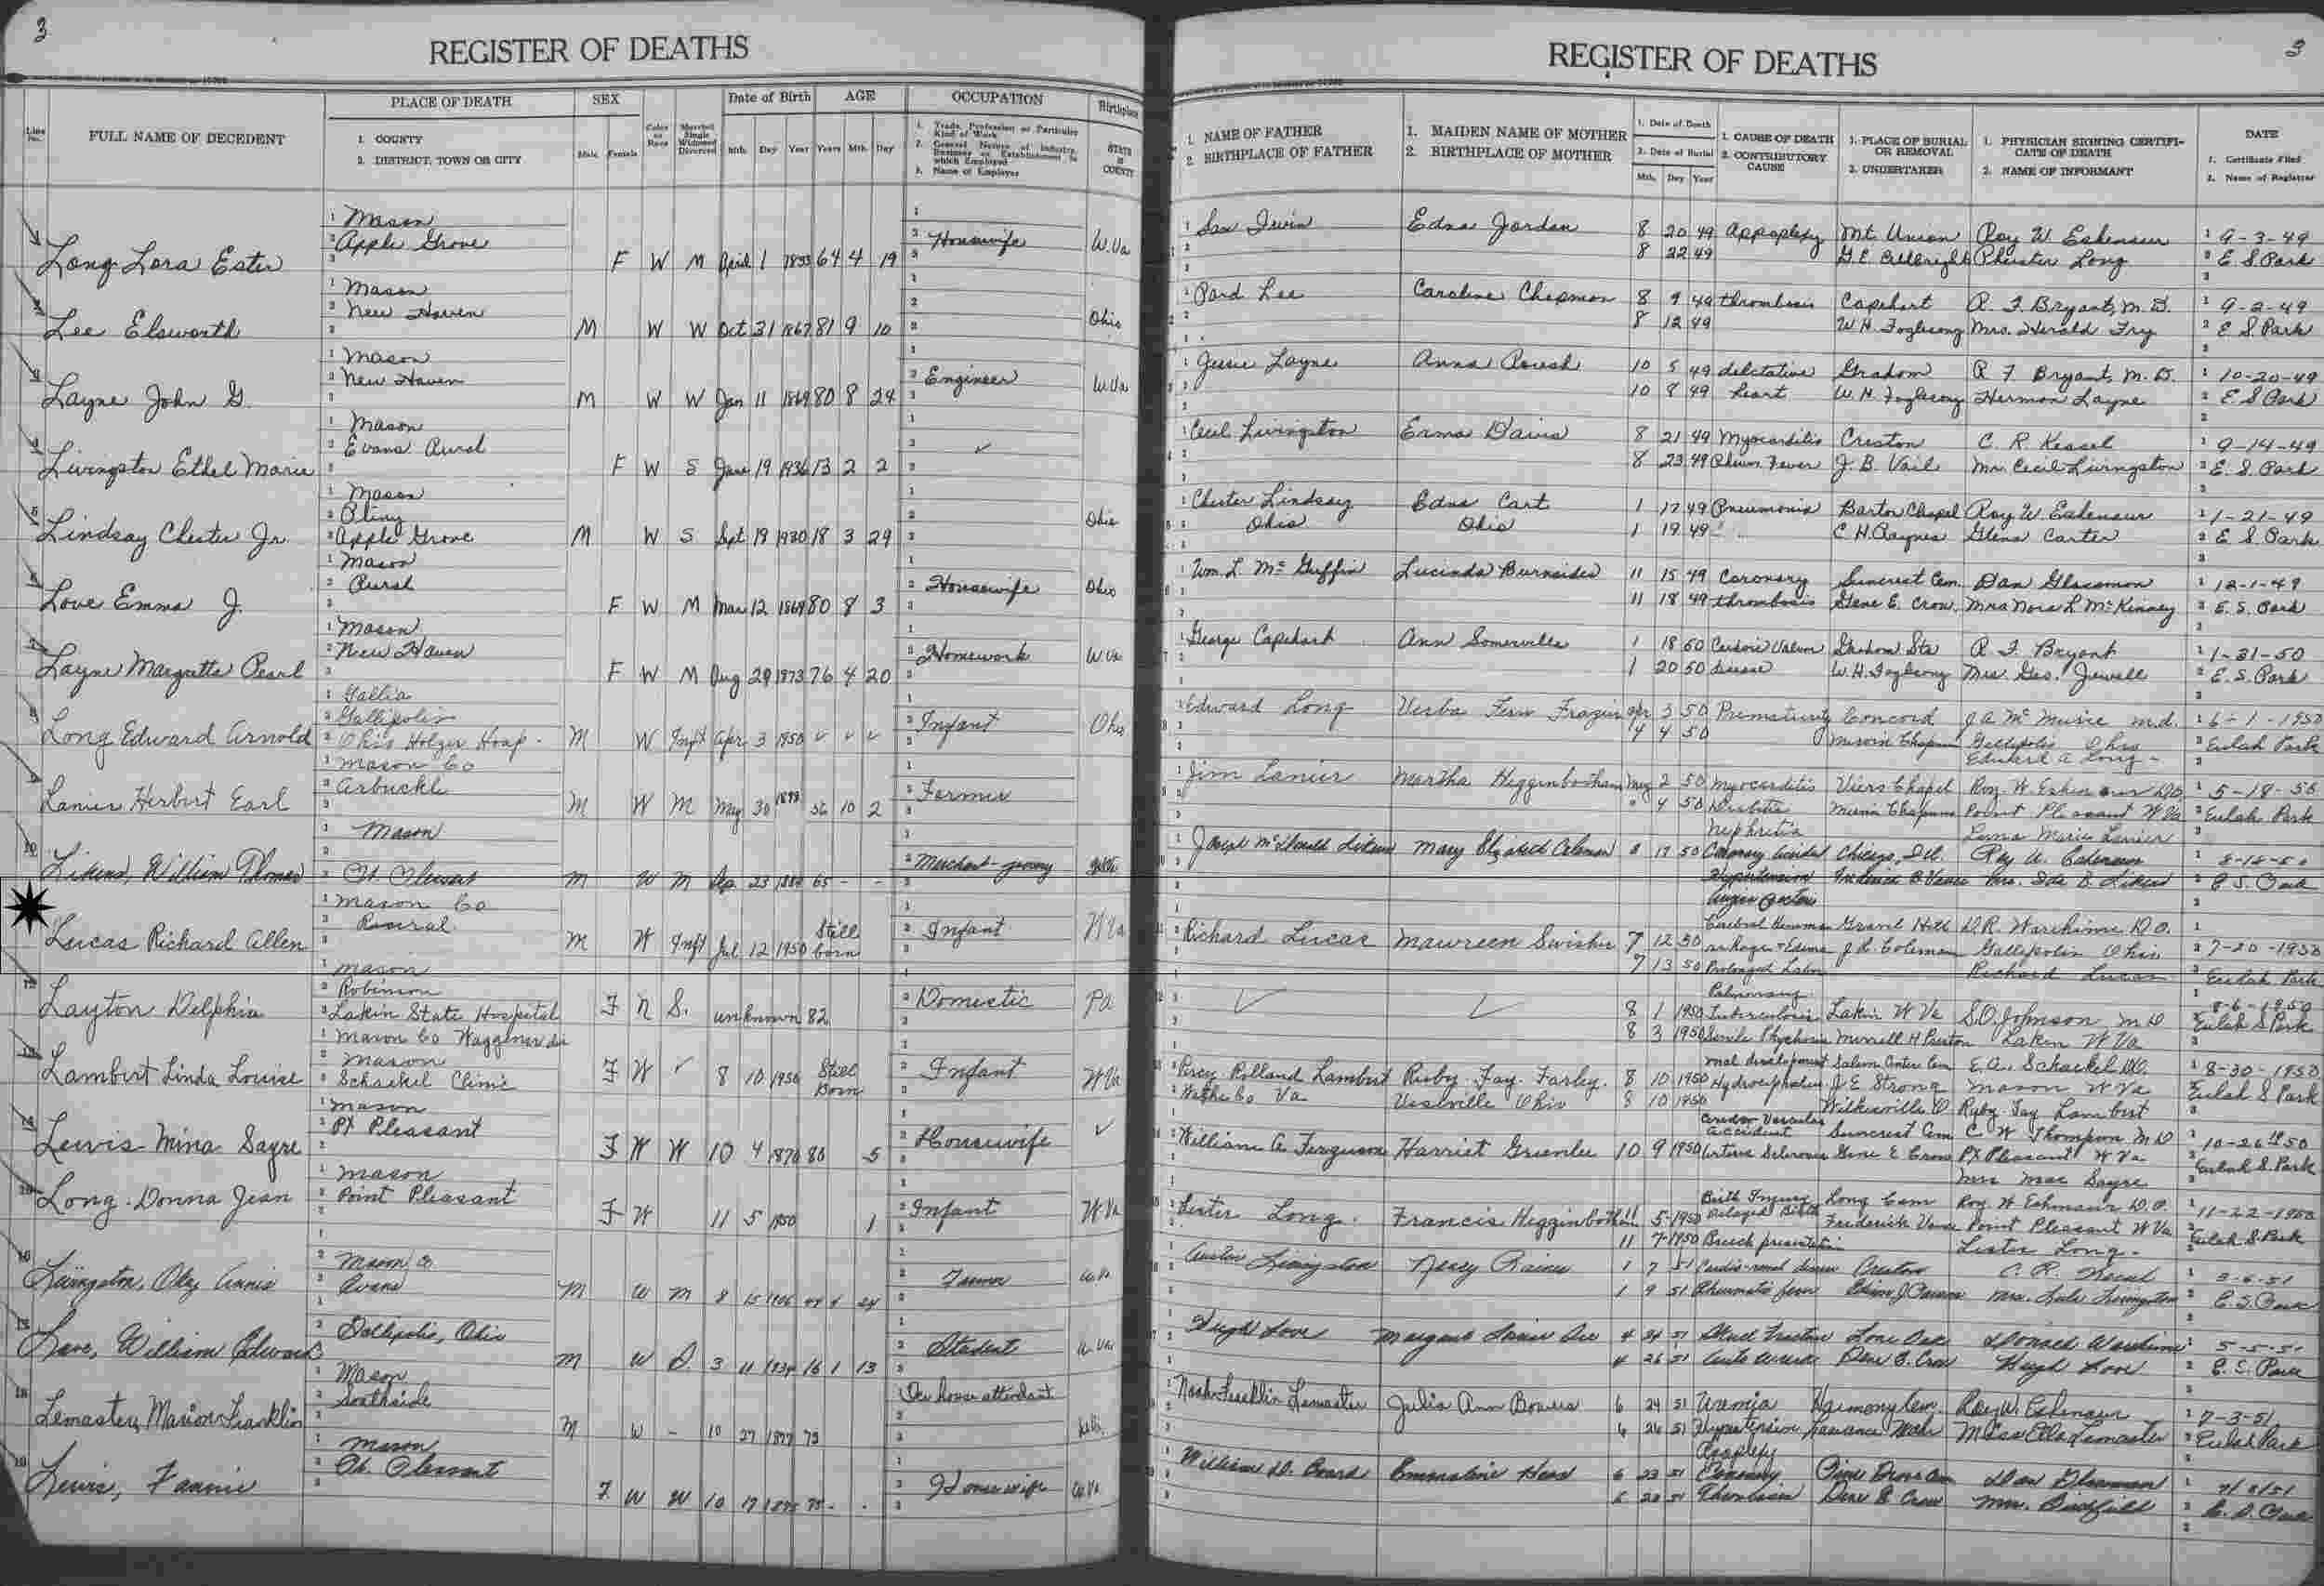 3
REGISTER OF DEATHS
REGISTER OF DEATHS
3
Line No.
FULL NAME OF DECEDENT
PLACE OF DEATH
1. COUNTY
2. DISTRICT, TOWN OR CITY
SEX
Male Female
Color or Race
Married Single Widowed Divorced
Date of Birth
Mth. Day Year
AGE
Years Mth. Day
OCCUPATION
1. Trade, Profession or Particular Kind of Work
2. General Nature of Industry, Business or Establishment in which Employed
3. Name of Employer
Birthplace
STATE or COUNTY
1. NAME OF FATHER
2. BIRTHPLACE OF FATHER
1. MAIDEN NAME OF MOTHER
2. BIRTHPLACE OF MOTHER
1. Date of Death
2. Date of Burial
Mth. Day Year
1. CAUSE OF DEATH
2. CONTRIBUTORY CAUSE
1. PLACE OF BURIAL OR REMOVAL
2. UNDERTAKER
1. PHYSICIAN SIGNING CERTIFICATE OF DEATH
2. NAME OF INFORMANT
DATE
1. Certificate Filed
2. Name of Registrar
Mason
Apple Grove
Long Lora Ester F W M April 1 64 4 19 Housewife W.Va
Irwin Edna Jordan 8 20 49 Appoplexy Mt. Union Roy W. Eshenaur 9-3-49
8 22 49 Long E S Park
Mason
New Haven
Lee Elsworth M W W Oct 31 1867 81 9 10 Ohio
Pard Lee Caroline Chapman 8 9 49 thrombosis Capehart R. F. Bryant, M.D. 9-2-49
8 12 49 W. H. Foglesong Mrs. Herald Fry E S Park
Mason
New Haven
Layne John G. M W W Jan 11 1869 80 8 24 Engineer W.Va
Jesse Layne Anna Roush 10 5 49 Graham R F Bryant, M.D. 10-20-49
10 8 49 heart W. H. Foglesong Herman Layne E S Park
Mason
Evans Rural
Livingston Ethel Marie F W S June 19 1936 13 2 2
Cecil Livingston Erma Davis 8 21 49 Myocarditis Creston C. R. Kessel 9-14-49
8 23 49 Rheum. Fever J. B. Vail Mr. Cecil Livingston E. S. Park
Mason
Pliny
Apple Grove
Lindsay Chester Jr. M W S Sept 19 1930 18 3 29 Ohio
Chester Lindsay Edna Cart 1 17 49 Pneumonia Barton Chapel Roy W. Eshenaur 1-21-49
Ohio Ohio 1 19 49 C H. Raynes Glenn Carter E. S. Park
Mason
Rural
Love Emma J. F W M Mar 12 1869 80 8 3 Housewife Ohio
Wm. L. McGuffin Lucinda Burnsides 11 15 49 Coronary Suncrest Cem. Dan Glassman 12-1-49
11 18 49 thrombosis Gene E. Crow Mrs Nora L. McKinney E. S. Park
Mason
New Haven
Layne Margretta Pearl F W M Aug 29 1873 76 4 20 Homework W.Va
George Capehart Ann Somerville 1 18 50 Graham Sta R F Bryant 1-31-50
1 20 50 disease W. H. Foglesong Mrs Geo. Jewell E. S. Park
Gallia
Gallipolis
Ohio Holzer Hosp.
Long Edward Arnold M W Inft Apr 3 1950 Infant Ohio
Edward Long Verba Fern Frazier Apr 3 50 Prematurity Concord M.D. 6-1-1950
4 4 50 Gallipolis Ohio Eulah Park
Edward A Long
Mason Co
Arbuckle
Lanier Herbert Earl M W M May 30 1893 56 10 2 Farmer
Jim Lanier Martha Higginbotham May 2 50 Myocarditis Viers Chapel Roy W. Eshenaur DO 5-18-50
4 50 Point Pleasant W Va Eulah Park
Nephritis Marie Lanier
Mason
Pt. Pleasant
Likens, William Thomas M W M Sep. 23 65 - - Merchant-grocery
Joseph McDonald Likens Mary Elizabeth Coleman 8 17 50 Coronary Chicago, Ill. 8-18-50
Hypertension Frederick B. Vance Mrs. Ida B. Likens E. S. Park
Angina Pectoris
Mason Co
Rural
Lucas Richard Allen M W Inft Jul 12 1950 Still born Infant W Va
Richard Lucas Maureen Swisher 7 12 50 Cerebral Hemorrhage Edema Gravel Hill D. R. Warehime D.O. 7-20-1950
7 13 50 Prolonged Labor J. R. Coleman Gallipolis Ohio Eulah Park
Richard Lucas
Mason
Robinson
Lakin State Hospital
Layton Delphia F N S. unknown 82 Domestic Pa
8 1 1950 Pulmonary Tuberculosis Lakin W Va S.O. Johnson M D 8-6-1950
8 3 1950 Senile Psychosis Merrill H Preston Lakin W Va Eulah S Park
Mason Co Waggener dis
Mason
Schackel Clinic
Lambert Linda Louise F W 8 10 1950 Still Born Infant W Va
Percy Rolland Lambert Ruby Fay Farley. 8 10 1950 Hydrocephalus Salem Center Cem E. A. Schackel D.O. 8-30-1950
Wythe Co Va Ohio 8 10 1950 J E Strong Mason W Va Eulah S Park
Wilkesville O Ruby Fay Lambert
Mason
Pt Pleasant
Lewis Mina Sayre F W W 10 4 1870 80 5 Housewife
William A. Ferguson Harriet Greenlee 10 9 1950 Accident Suncrest Cem C. W Thompson M D 10-26 50
Gene E Crow Pt Pleasant W Va Eulah S. Park
Mrs Mae Sayre
Mason
Point Pleasant
Long Donna Jean F W 11 5 1950 1 Infant W.Va
Lester Long. Francis Higginbotham 11 5 1950 Birth Injury Delayed Birth Long Cem Roy W Eshenaur D.O. 11-22-1950
11 7 1950 Breech presentation Frederick Vance Point Pleasant W Va Eulah S Park
Lester Long.
Mason Co
Evans
Livingston, Oley Annis M W M 8 15 1906 44 4 24 Farmer W.Va
Austin Livingston Nancy Raines 1 7 51 Cardio-renal disease Creston C. R. Kessel 3-6-51
1 9 51 Rheumatic fever Mrs. Lula Livingston E. S. Park
Gallipolis, Ohio
Love, William Edward M W S. 3 11 1934 16 1 13 Student W.Va
Hugh Love 4 24 51 Skull Fracture Lone Oak Donald Warehime 5-5-51
4 26 51 auto wreck Gene E. Crow Hugh Love E. S. Park
Mason
Southside
Lemasters Marion Franklin M W - 10 27 1877 73 attendant
Noah Franklin Lemaster Julia Ann Bowers 6 24 51 Uremia Harmony Cem. Roy W. Eshenaur 7-3-51
6 26 51 Hypertension Miss Ella Lemaster Eulah Park
Apoplexy
Mason
Pt. Pleasant
Lewis, Fannie F W W 10 17 1875 75 - - Housewife W.Va
William D. Board Emmaline Head 6 23 51 Coronary Pine Grove Cem Dan Glassman
Thrombosis Gene E. Crow Mrs. E. S. Park